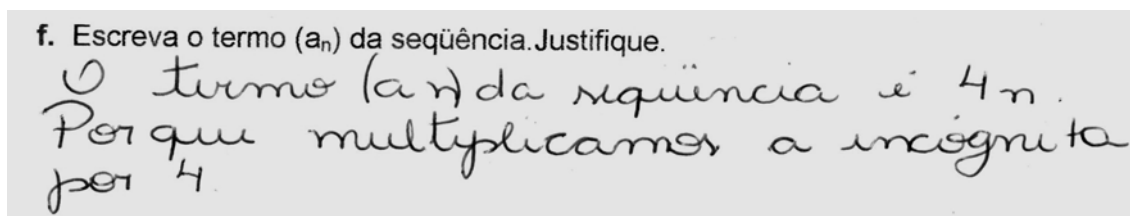 f. Escreva o termo (aₙ) da seqüência.Justifique.
O termo (an) da seqüência é 4n.
Porque multyplicamos a incógnita
por 4.